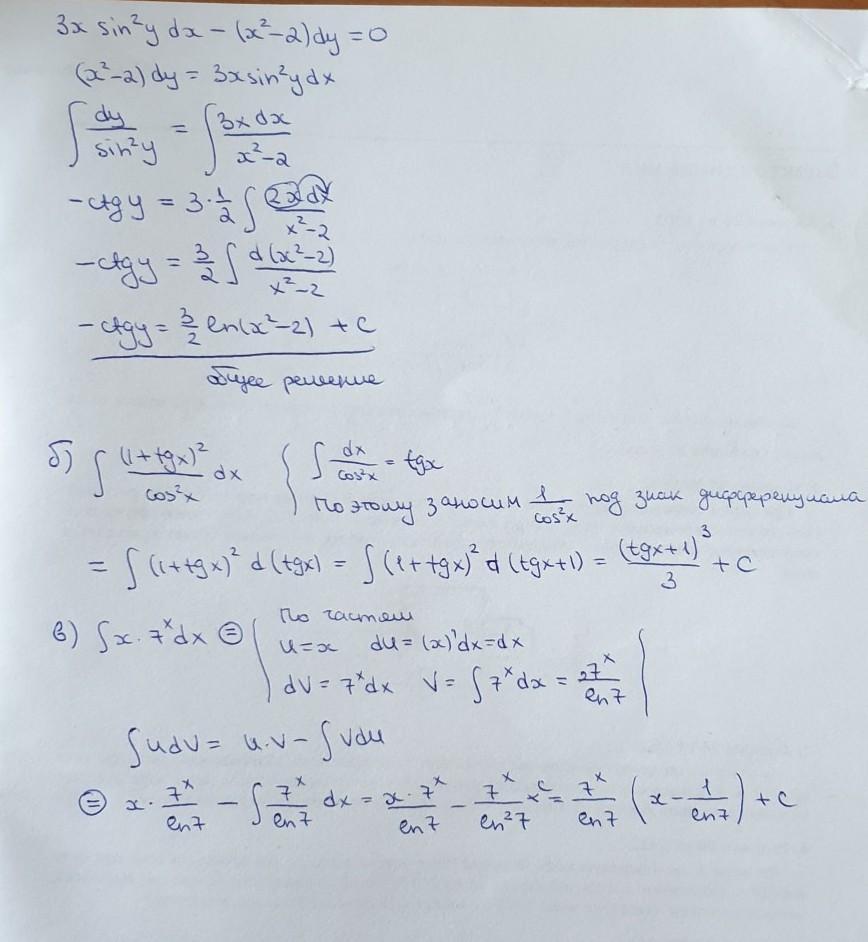 3x sin²y dx − (x²−2)dy = 0
(x²−2)dy = 3x sin²y dx
∫ dy/sin²y = ∫ 3x dx/(x²−2)
−ctg y = 3·1/2 ∫ 2x dx/(x²−2)
−ctg y = 3/2 ∫ d(x²−2)/(x²−2)
−ctg y = 3/2 ln(x²−2) + C
общее решение
б) ∫ (1+tgx)²/cos²x dx { ∫ dx/cos²x = tgx
Поэтому заносим 1/cos²x под знак дифференциала
= ∫ (1+tgx)² d(tgx) = ∫ (1+tgx)² d(tgx+1) = (tgx+1)³/3 + C
По частям
в) ∫ x·7ˣ dx ⊜ u = x du = (x)'dx = dx
dV = 7ˣdx V = ∫ 7ˣdx = 7ˣ/ln7
∫ u dV = u·V − ∫ V du
⊜ x · 7ˣ/ln7 − ∫ 7ˣ/ln7 dx = x·7ˣ/ln7 − 7ˣ/ln²7 + C = 7ˣ/ln7 (x − 1/ln7) + C